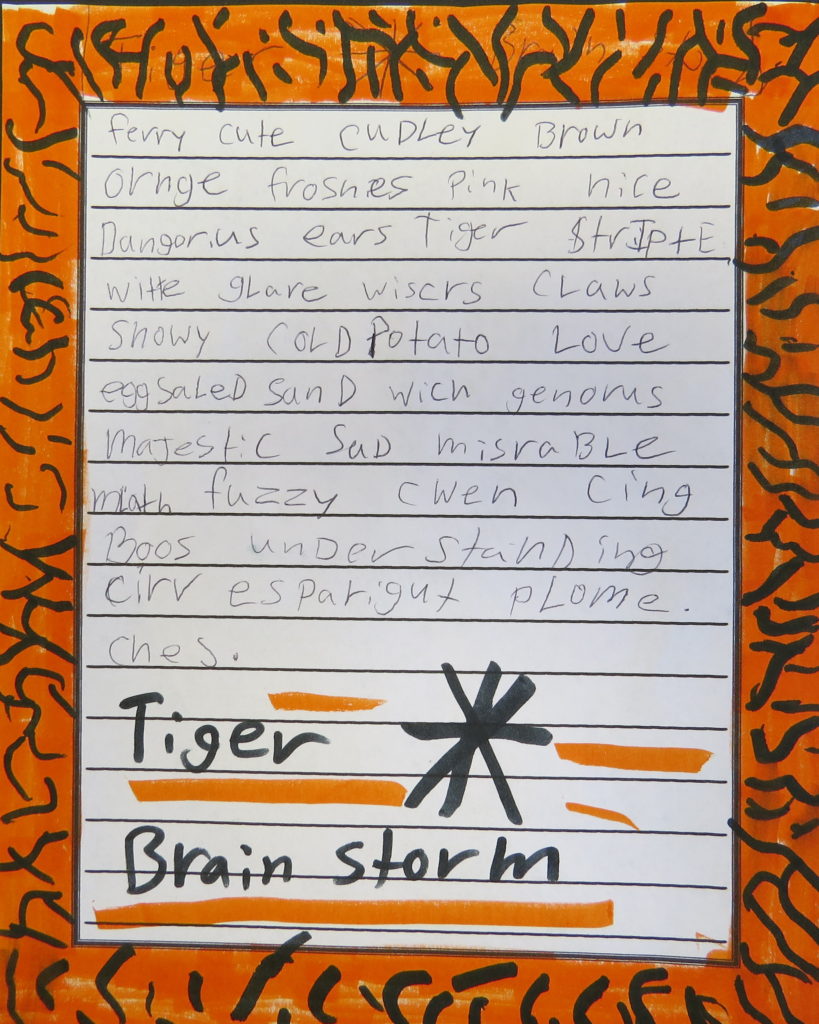 ferry cute CUDLEY Brown
Ornge frosnes Pink nice
Dangorius ears Tiger StrIptE
witte glare wiscrs CLAWS
Showy COLD Potato Love
egg SaLeD SanD wich genorus
Majestic SaD misraBLe
fuzzy cwen Cing
Boos unDerstanDing
Cirv esparigut pLome.
Ches.
Tiger
Brain storm